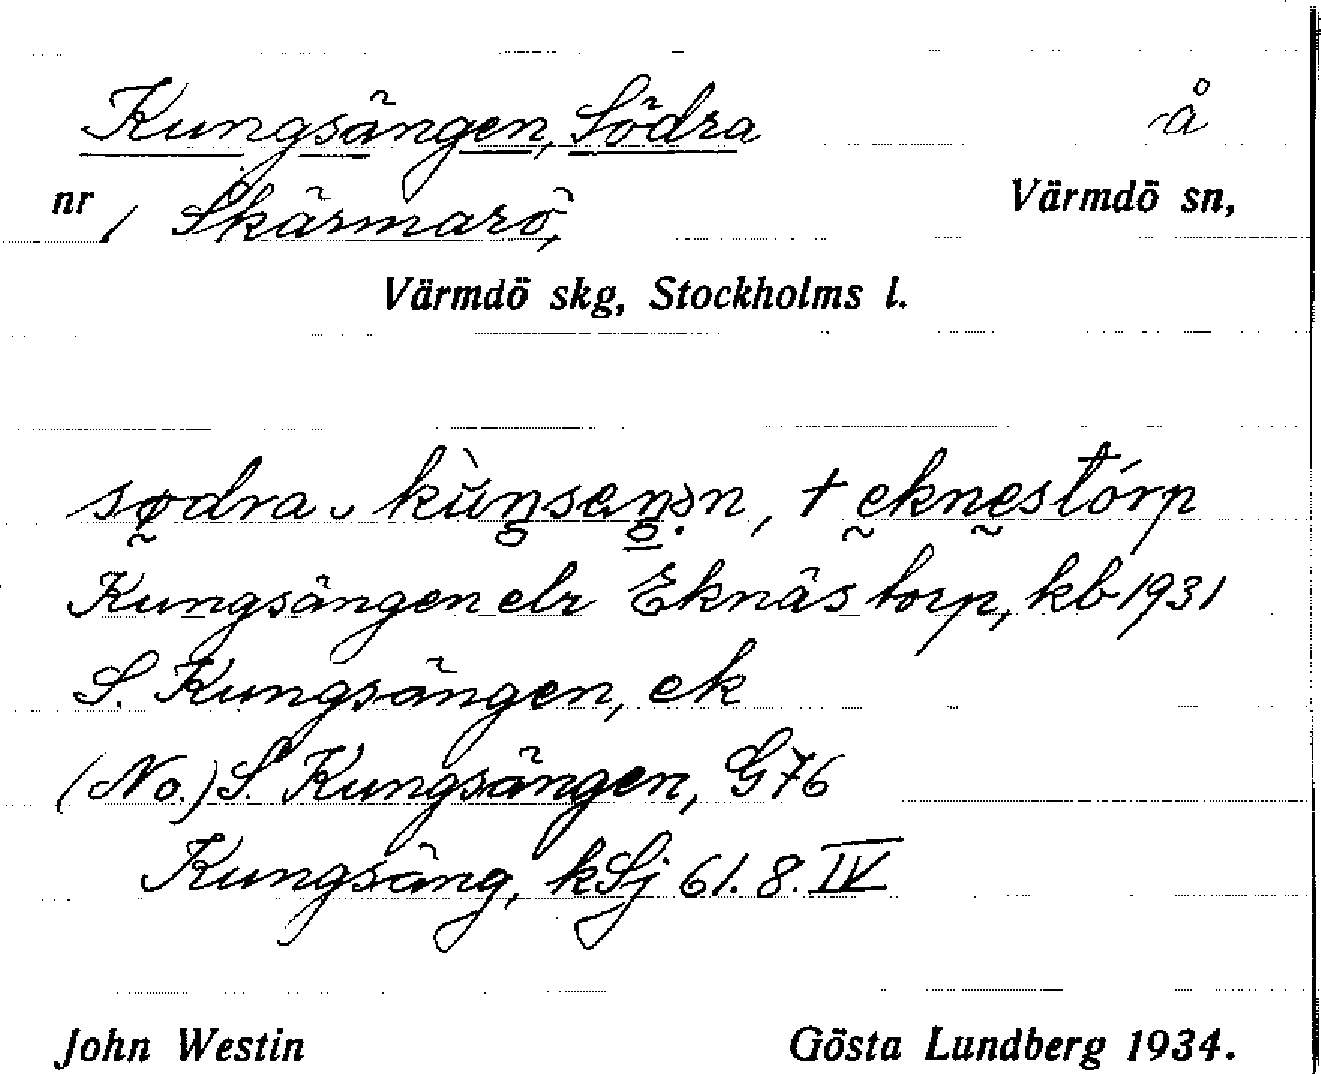 Kungsängen, Södra å
nr 1 Skärmarö, Värmdö sn,
Värmdö skg, Stockholms l.
sødra kùŋsɑŋən, + eknestórp
Kungsängen elr Eknäs torp, kb 1931
S. Kungsängen, ek
(No.) S. Kungsängen, G76
Kungsäng, kSj 61. 8. IV
John Westin Gösta Lundberg 1934.